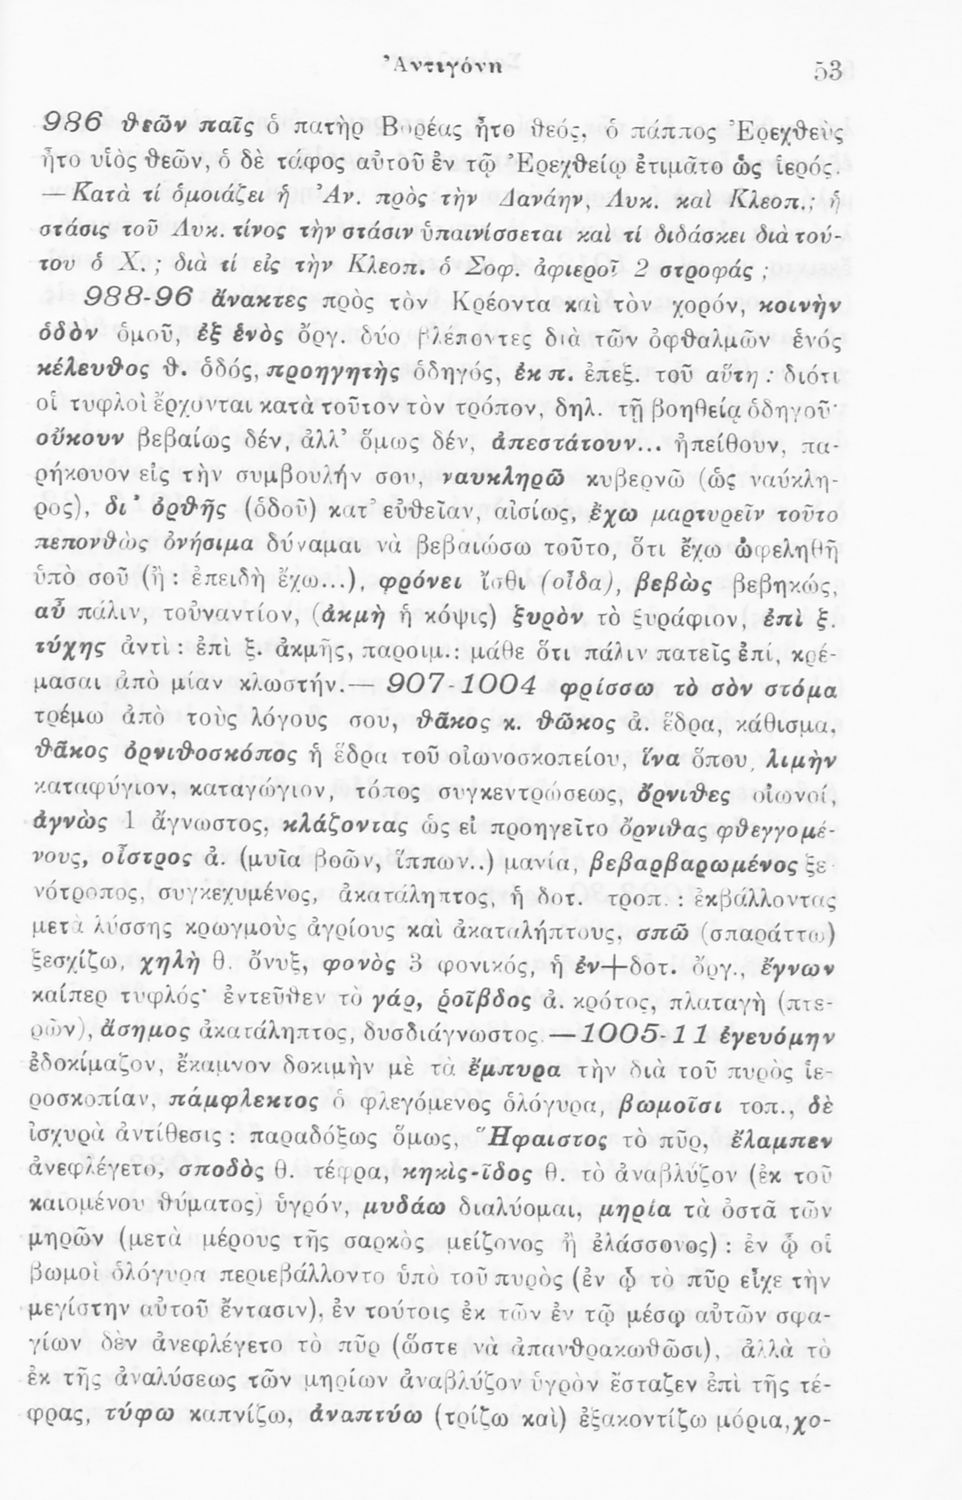 Ἀντιγόνη 53
986 θεῶν παῖς ὁ πατὴρ Βορέας ἦτο θεός, ὁ πάππος Ἐρεχθεὺς
ἦτο υἱὸς θεῶν, ὁ δὲ τάφος αὐτοῦ ἐν τῷ Ἐρεχθείῳ ἐτιμᾶτο ὡς ἱερός.
— Κατὰ τί ὁμοιάζει ἡ Ἀν. πρὸς τὴν Δανάην, Λυκ. καὶ Κλεοπ.; ἡ
στάσις τοῦ Λυκ. τίνος τὴν στάσιν ὑπαινίσσεται καὶ τί διδάσκει διὰ τού-
του ὁ Χ.; διὰ τί εἰς τὴν Κλεοπ. ὁ Σοφ. ἀφιεροῖ 2 στροφάς ;
988-96 ἄνακτες πρὸς τὸν Κρέοντα καὶ τὸν χορόν, κοινὴν
ὁδὸν ὁμοῦ, ἐξ ἑνὸς ὀργ. δύο βλέποντες διὰ τῶν ὀφθαλμῶν ἑνός
κέλευθος θ. ὁδός, προηγητὴς ὁδηγός, ἐκ π. ἐπεξ. τοῦ αὕτη : διότι
οἱ τυφλοὶ ἔρχονται κατὰ τοῦτον τὸν τρόπον, δηλ. τῇ βοηθείᾳ ὁδηγοῦ·
οὔκουν βεβαίως δέν, ἀλλ’ ὅμως δέν, ἀπεστάτουν... ἠπείθουν, πα-
ρήκουον εἰς τὴν συμβουλήν σου, ναυκληρῶ κυβερνῶ (ὡς ναύκλη-
ρος), δι’ ὀρθῆς (ὁδοῦ) κατ’ εὐθεῖαν, αἰσίως, ἔχω μαρτυρεῖν τοῦτο
πεπονθὼς ὀνήσιμα δύναμαι νὰ βεβαιώσω τοῦτο, ὅτι ἔχω ὠφεληθῆ
ὑπὸ σοῦ (ἢ : ἐπειδὴ ἔχω...), φρόνει ἴσθι (οἶδα), βεβὼς βεβηκώς,
αὖ πάλιν, τοὐναντίον, (ἀκμὴ ἡ κόψις) ξυρὸν τὸ ξυράφιον, ἐπὶ ξ.
τύχης ἀντὶ : ἐπὶ ξ. ἀκμῆς, παροιμ.: μάθε ὅτι πάλιν πατεῖς ἐπί, κρέ-
μασαι ἀπὸ μίαν κλωστήν.— 907-1004 φρίσσω τὸ σὸν στόμα
τρέμω ἀπὸ τοὺς λόγους σου, θᾶκος κ. θῶκος ἀ. ἕδρα, κάθισμα,
θᾶκος ὀρνιθοσκόπος ἡ ἕδρα τοῦ οἰωνοσκοπείου, ἵνα ὅπου, λιμὴν
καταφύγιον, καταγώγιον, τόπος συγκεντρώσεως, ὄρνιθες οἰωνοί,
ἀγνὼς 1 ἄγνωστος, κλάζοντας ὡς εἰ προηγεῖτο ὄρνιθας φθεγγομέ-
νους, οἶστρος ἀ. (μυῖα βοῶν, ἵππων..) μανία, βεβαρβαρωμένος ξε-
νότροπος, συγκεχυμένος, ἀκατάληπτος, ἡ δοτ. τροπ. : ἐκβάλλοντας
μετὰ λύσσης κρωγμοὺς ἀγρίους καὶ ἀκαταλήπτους, σπῶ (σπαράττω)
ξεσχίζω, χηλὴ θ. ὄνυξ, φονὸς 3 φονικός, ἡ ἐν+δοτ. ὀργ., ἔγνων
καίπερ τυφλός· ἐντεῦθεν τὸ γάρ, ῥοῖβδος ἀ. κρότος, πλαταγὴ (πτε-
ρῶν), ἄσημος ἀκατάληπτος, δυσδιάγνωστος. — 1005-11 ἐγευόμην
ἐδοκίμαζον, ἔκαμνον δοκιμὴν μὲ τὰ ἔμπυρα τὴν διὰ τοῦ πυρὸς ἱε-
ροσκοπίαν, πάμφλεκτος ὁ φλεγόμενος ὁλόγυρα, βωμοῖσι τοπ., δὲ
ἰσχυρὰ ἀντίθεσις : παραδόξως ὅμως, Ἥφαιστος τὸ πῦρ, ἔλαμπεν
ἀνεφλέγετο, σποδὸς θ. τέφρα, κηκὶς-ῖδος θ. τὸ ἀναβλύζον (ἐκ τοῦ
καιομένου θύματος) ὑγρόν, μυδάω διαλύομαι, μηρία τὰ ὀστᾶ τῶν
μηρῶν (μετὰ μέρους τῆς σαρκὸς μείζονος ἢ ἐλάσσονος) : ἐν ᾧ οἱ
βωμοὶ ὁλόγυρα περιεβάλλοντο ὑπὸ τοῦ πυρὸς (ἐν ᾧ τὸ πῦρ εἶχε τὴν
μεγίστην αὐτοῦ ἔντασιν), ἐν τούτοις ἐκ τῶν ἐν τῷ μέσῳ αὐτῶν σφα-
γίων δὲν ἀνεφλέγετο τὸ πῦρ (ὥστε νὰ ἀπανθρακωθῶσι), ἀλλὰ τὸ
ἐκ τῆς ἀναλύσεως τῶν μηρίων ἀναβλύζον ὑγρὸν ἔσταζεν ἐπὶ τῆς τέ-
φρας, τύφω καπνίζω, ἀναπτύω (τρίζω καὶ) ἐξακοντίζω μόρια, χο-